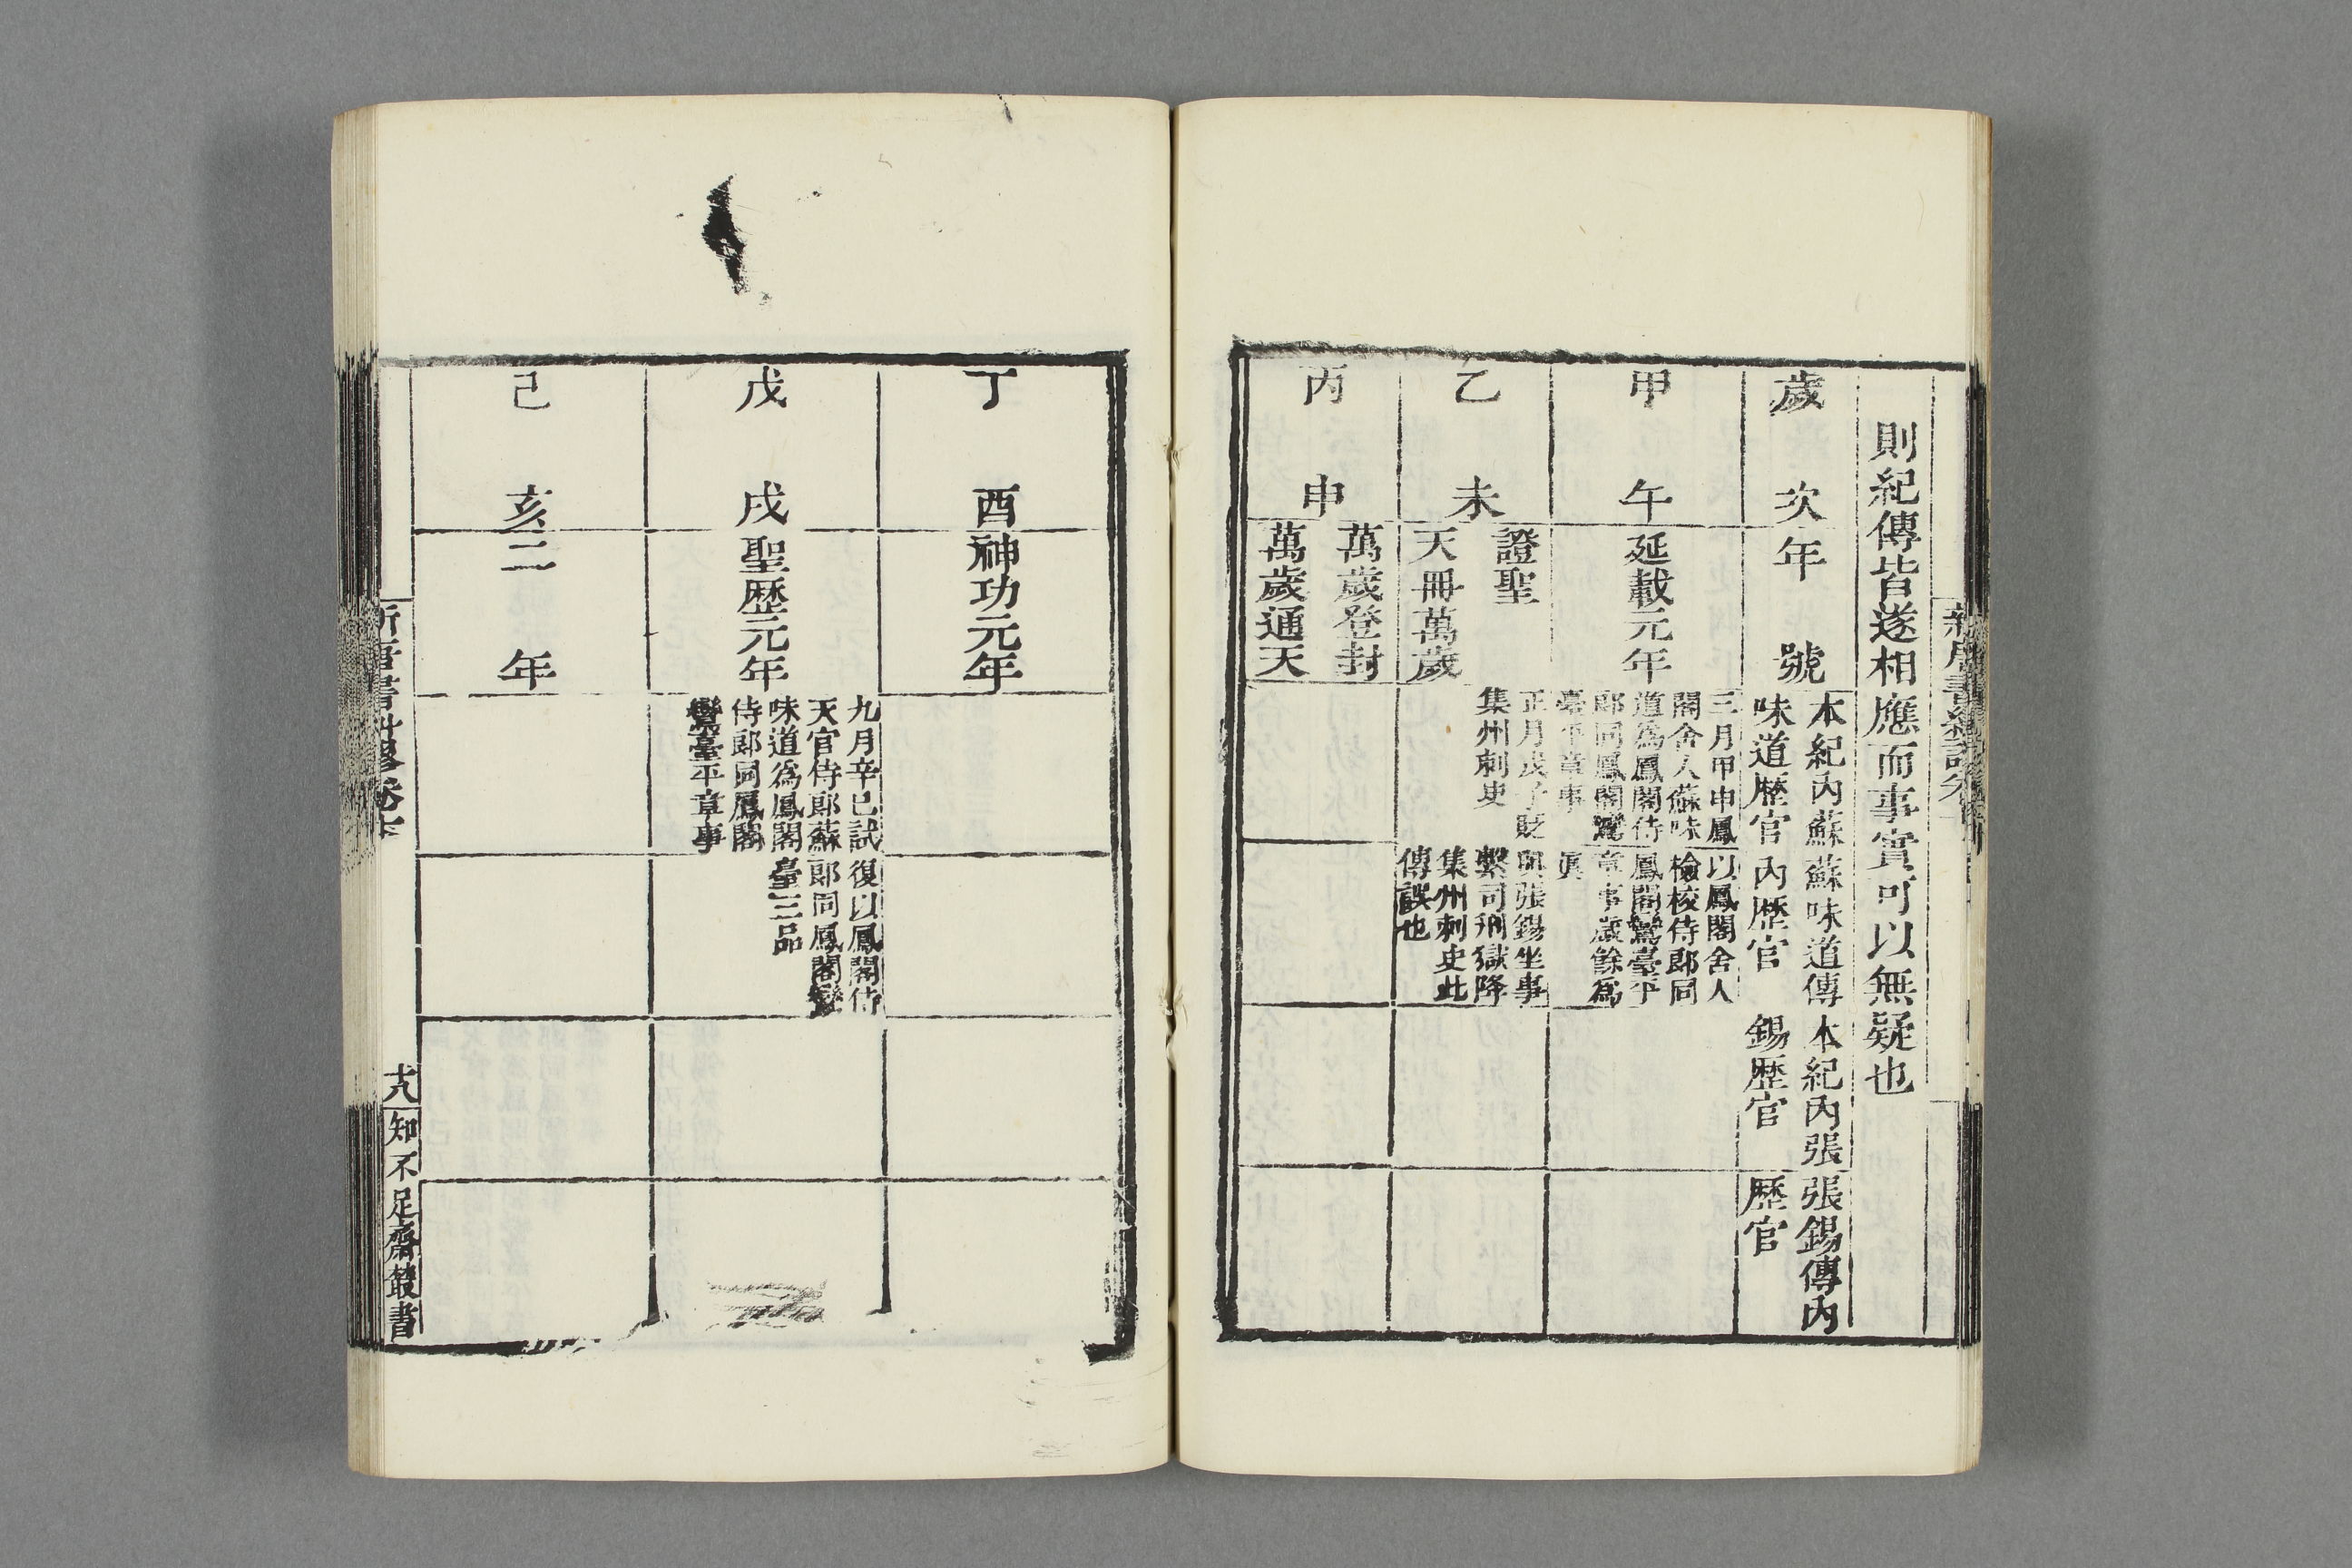 則紀傳皆遂相應而事實可以無疑也
歲次
年號
本紀內蘇
味道歷官
蘇味道傳
內歷官
本紀內張
錫歷官
張錫傳內
歷官
甲午
延載元年
三月甲申鳳
閣舍人蘇味
道爲鳳閣侍
郎同鳳閣鸞
臺平章事
以鳳閣舍人
檢校侍郎同
鳳閣鸞臺平
章事歲餘爲
眞
乙未
證聖
天冊萬歲
正月戊子貶
集州刺史
與張錫坐事
繫司刑獄降
集州刺史此
傳誤也
丙申
萬歲登封
萬歲通天
丁酉
神功元年
戊戌
聖歷元年
九月辛巳試
天官侍郎蘇
味道爲鳳閣
侍郎同鳳閣
鸞臺平章事
復以鳳閣侍
郎同鳳閣鸞
臺三品
己亥
二年
十八
知不足齋叢書